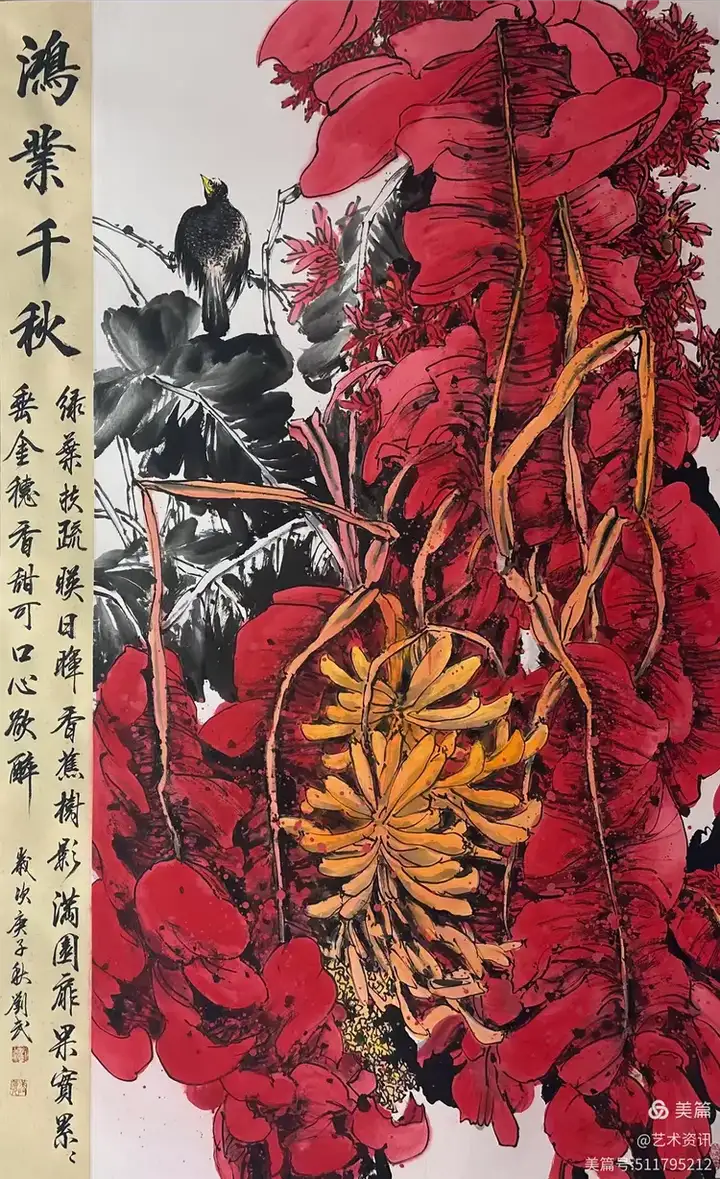 鴻業千秋
绿葉扶疏暎日暉香蕉樹影滿園扉果實累〻
垂金穗香甜可口心欲醉
歲次庚子秋劉
美篇
@艺术资讯
美篇号:511795212